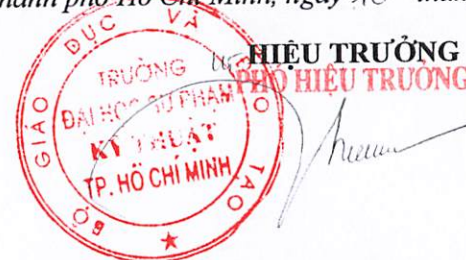 hành phố Hồ Chí Minh, ngày
HIỆU TRƯỞNG
PHÓ HIỆU TRƯỞNG
BỘ GIÁO DỤC VÀ ĐÀO TẠO
TRƯỜNG
ĐẠI HỌC SƯ PHẠM
KỸ THUẬT
TP. HỒ CHÍ MINH